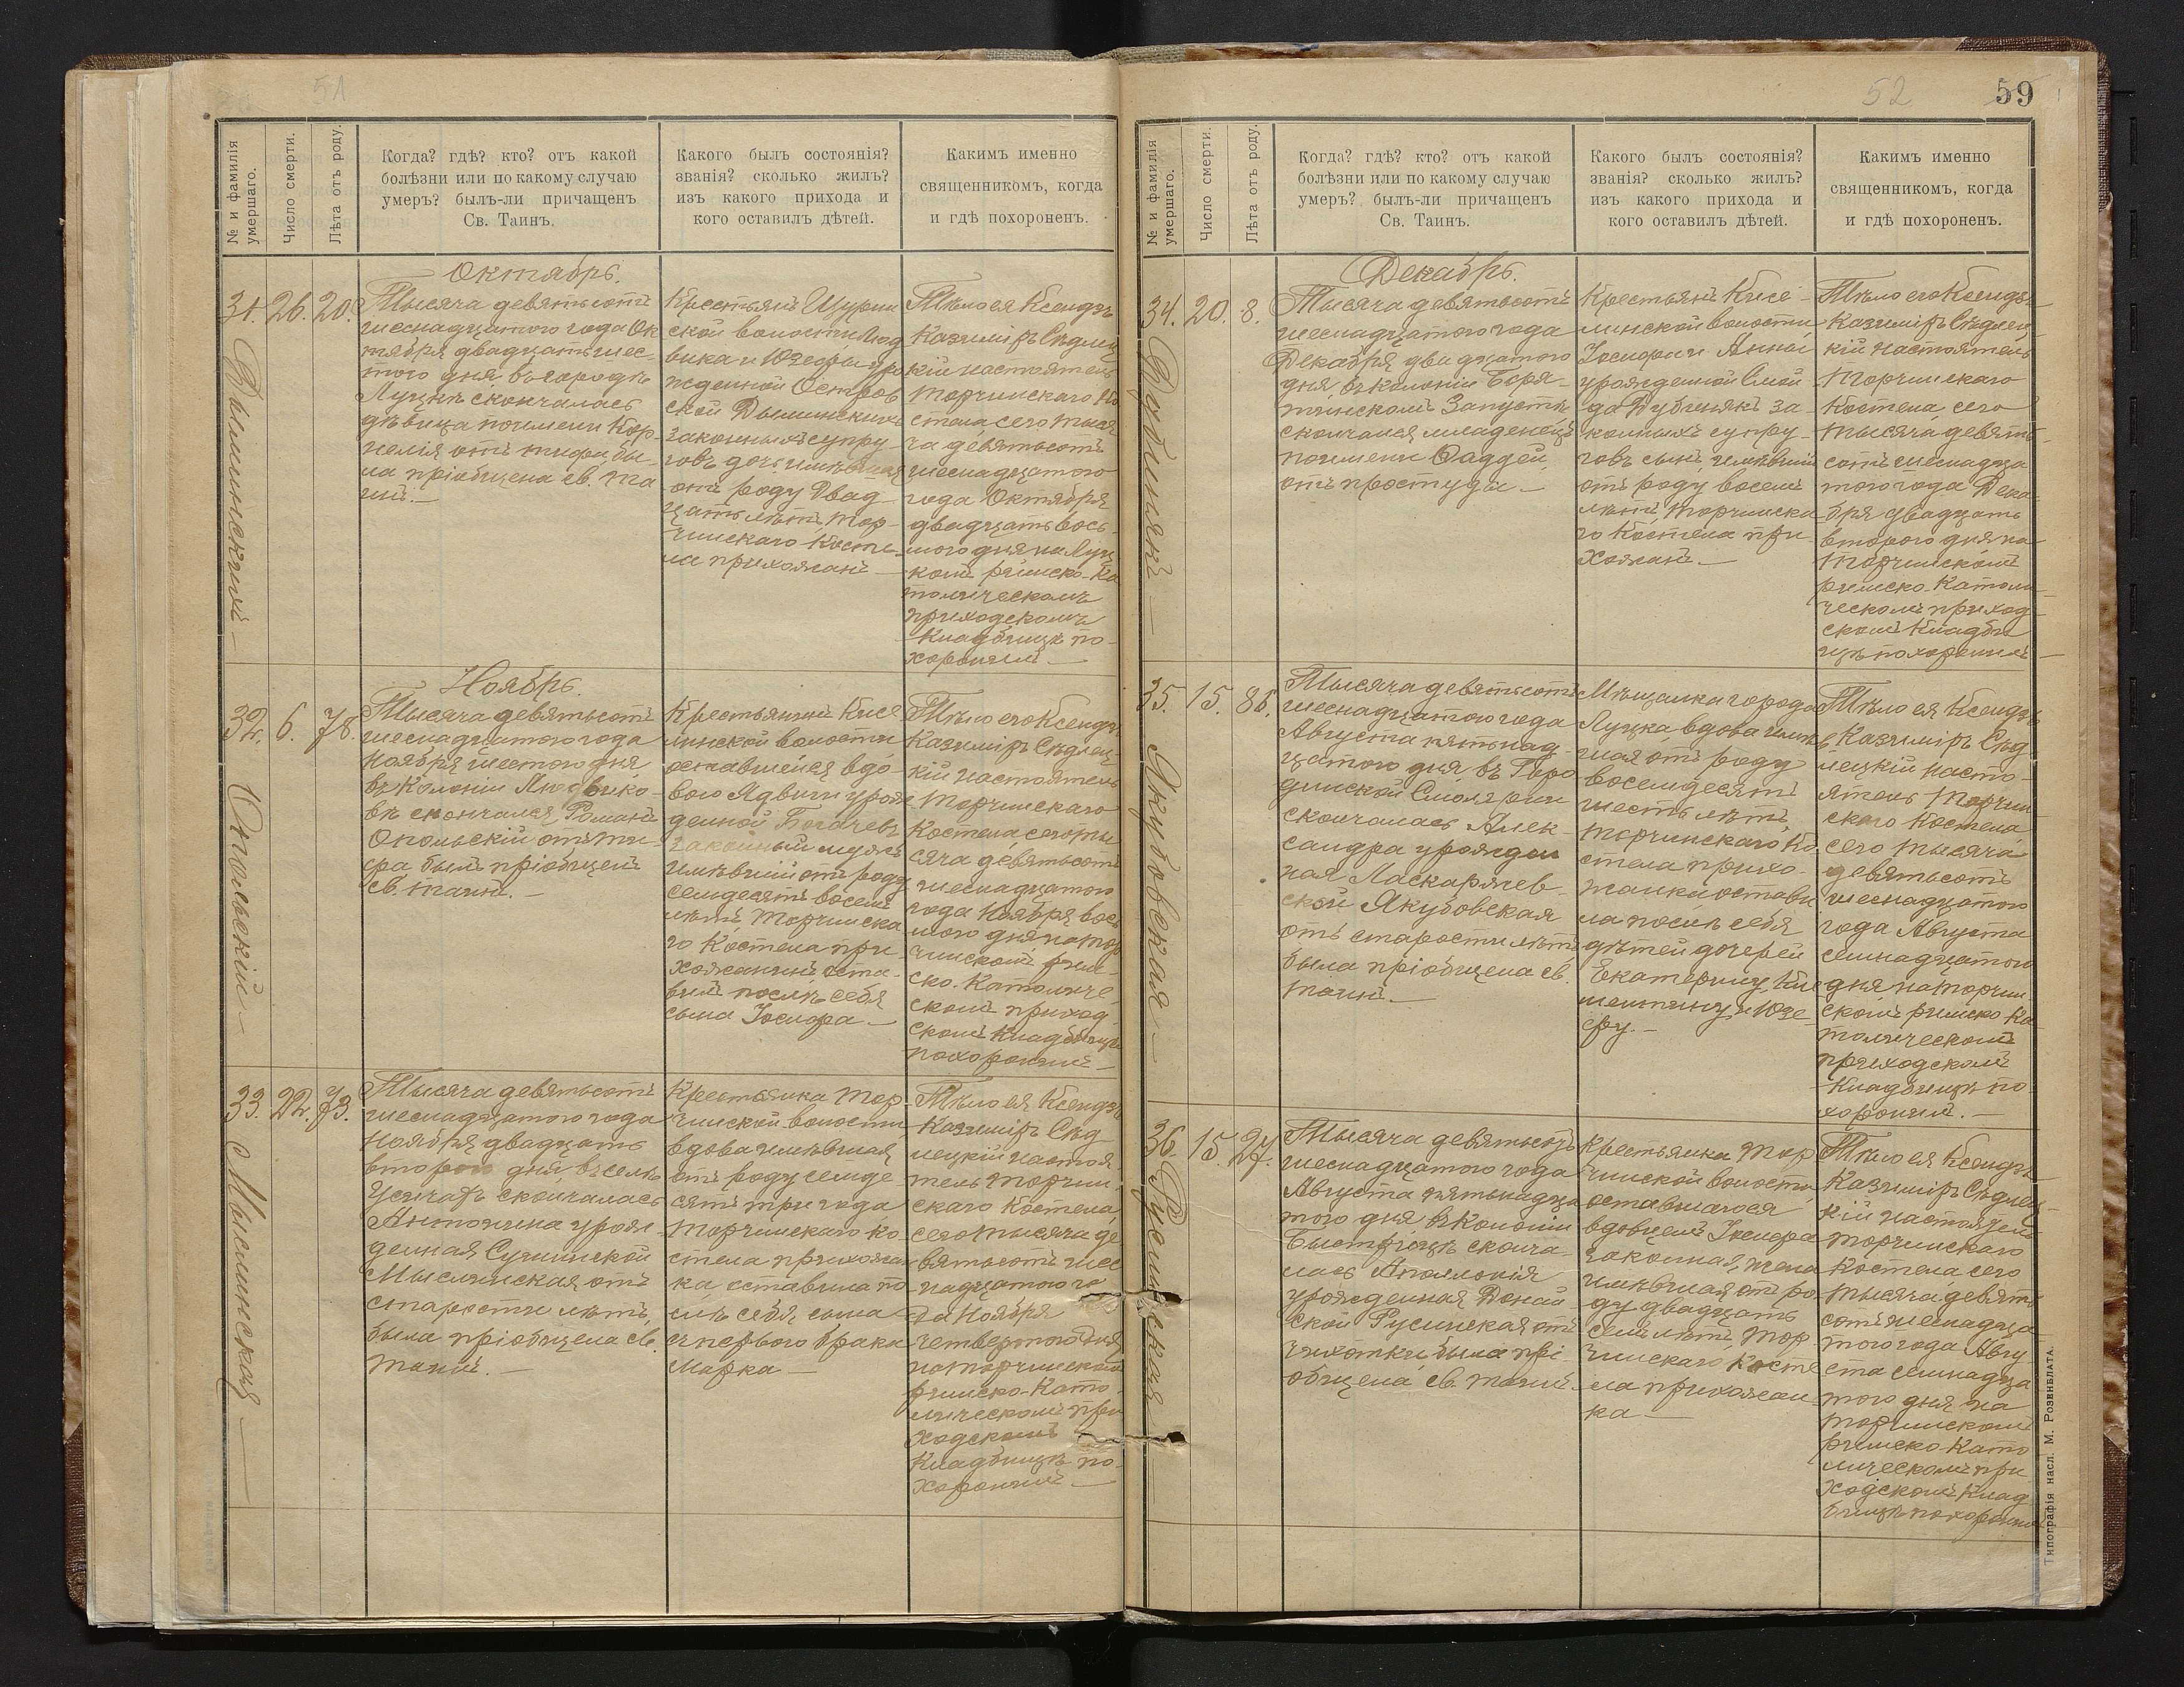 51
№ и фамилія умершаго.
Число смерти.
Лѣта отъ роду.
Когда? гдѣ? кто? отъ какой
болѣзни или по какому случаю
умеръ? былъ-ли причащенъ
Св. Таинъ.
Какого былъ состоянія?
званія? сколько жилъ?
изъ какого прихода и
кого оставилъ дѣтей.
Какимъ именно
священникомъ, когда
и гдѣ похороненъ.
31.
26.
20.
Октябрь.
Тысяча девятьсотъ
шеснадцатого года Ок
тября двадцать шес-
того дня въ городѣ
Луцкѣ скончалась
дѣвица по имени Кор-
нелія отъ тифа бы-
ла пріобщена св. та
инъ. —
Крестьянъ Щурин
ской волости Люд
вика и Юзефы уро
жденной Остров
ской
законныхъ супру-
говъ дочь имѣвшая
отъ роду двад-
цать лѣтъ, Тор-
чинскаго косте-
ла прихожанъ —
Тѣло ея Ксендзъ
Казиміръ Сѣдлец
кій настоятель
Торчинскаго Ко
стела, сего тыся
ча девятьсотъ
шеснадцатого
года Октября
двадцать вось-
мого дня на Луц-
комъ римско-ка
толическомъ
приходскомъ
кладбищѣ по-
хоронилъ —
32.
6.
78.
Опольскій —
Ноябрь.
Тысяча девятьсотъ
шеснадцатого года
Ноября шестого дня
въ Колоніи Людвико-
вкѣ скончался Романъ
Опольскій отъ ти-
фа былъ пріобщенъ
св. таинъ. —
Крестьянинъ Кисе
линской волости
оставшейся вдо-
вою Ядвиги урож
денной
законный мужъ
имѣвшій отъ роду
семдесятъ восемь
лѣтъ, Торчинска
го Костела при-
хожанинъ оста-
вилъ послѣ себя
сына Іосифа —
Тѣло его Ксендзъ
Казиміръ Сѣдлец-
кій настоятель
Торчинскаго
Костела, сего ты
сяча девятьсотъ
шеснадцатого
года Ноября вось
мого дня на Тор
чинскомъ рим-
ско-Католиче
скомъ приход
скомъ кладбищѣ
похоронилъ —
33.
22.
73.
Мыслинская —
Тысяча девятьсотъ
шеснадцатого года
Ноября двадцать
второго дня, въ селѣ
Усичахъ скончалась
Антонина урож
денная Сушинской
Мыслинская отъ
старости лѣтъ,
была пріобщена св.
таинъ. —
Крестьянка Тор-
чинской волости,
вдова имѣвшая
отъ роду семде-
сятъ три года
Торчинскаго ко-
стела прихожан
ка, оставила по
слѣ себя сына
съ перваго брака
Марка —
Тѣло ея Ксендзъ
Казиміръ Сѣд-
лецкій настоя
тель Торчин
скаго Костела,
сего тысяча де
вятьсотъ шес
надцатого го
да Ноября
четвертого дня
на Торчинскомъ
римско-Като-
лическомъ при
ходскомъ
кладбищѣ по-
хоронилъ —
52
59
№ и фамилія умершаго.
Число смерти.
Лѣта отъ роду.
Когда? гдѣ? кто? отъ какой
болѣзни или по какому случаю
умеръ? былъ-ли причащенъ
Св. Таинъ.
Какого былъ состоянія?
званія? сколько жилъ?
изъ какого прихода и
кого оставилъ дѣтей.
Какимъ именно
священникомъ, когда
и гдѣ похороненъ.
34.
20.
8.
Декабрь.
Тысяча девятьсотъ
шеснадцатого года
Декабря двадцатого
дня, въ колоніи Боря-
тинскомъ Запустѣ
скончался младенецъ
по имени Фаддей,
отъ простуды —
Крестьянъ Кисе-
линской волости
Іосифа и Анны
урожденной
законныхъ супру-
говъ сынъ, имѣвшій
отъ роду восемь
лѣтъ, Торчинска
го Костела при-
хожанъ —
Тѣло его Ксендзъ
Казиміръ Сѣдлец
кій настоятель
Торчинскаго
Костела, сего
тысяча девять-
сотъ шеснадца
того года Дека-
бря двадцать
второго дня на
Торчинскомъ
римско-Католи
ческомъ приход
скомъ кладби
щѣ похоронилъ —
35.
15.
86.
Якубовская —
Тысяча девятьсотъ
шеснадцатого года
Августа пятьнад-
цатого дня, въ Горо
динской Смолярни
скончалась Алек-
сандра урожден
ная Ласкаржев-
ской Якубовская
отъ старости лѣтъ
была пріобщена св.
таинъ. —
Мѣщанка города
Луцка, вдова имѣв
шая отъ роду
восемдесятъ
шесть лѣтъ,
Торчинскаго Ко
стела прихо-
жанка, остави
ла послѣ себя
дѣтей дочерей
Екатерину, Кле
ментину и Юзе
фу. —
Тѣло ея Ксендзъ
Казиміръ Сѣд-
лецкій насто-
ятель Торчин
скаго Костела
сего тысяча
девятьсотъ
шеснадцатого
года Августа
семнадцатого
дня, на Торчин
скомъ римско-ка
толическомъ
приходскомъ
кладбищѣ по-
хоронилъ. —
36.
15.
27.
Русинская —
Тысяча девятьсотъ
шеснадцатого года
Августа пятьнадца
того дня въ Колоніи
Быстржицѣ сконча-
лась Аполлонія
урожденная Донай-
ской Русинская отъ
чахотки, была прі-
общена св. таинъ
Крестьянка Тор
чинской волости,
оставшагося
вдовцемъ Іосифа
законная жена
имѣвшая отъ ро
ду двадцать
семь лѣтъ, Тор
чинскаго Косте
ла прихожан-
ка —
Тѣло ея Ксендзъ
Казиміръ Сѣдлец-
кій настоятель
Торчинскаго
Костела, сего
тысяча девять
сотъ шеснадца
того года Авгу-
ста семнадца
того дня на
Торчинскомъ
римско-Като
лическомъ при
ходскомъ клад
бищѣ похоронилъ
Типографія насл. М. Розенблата.